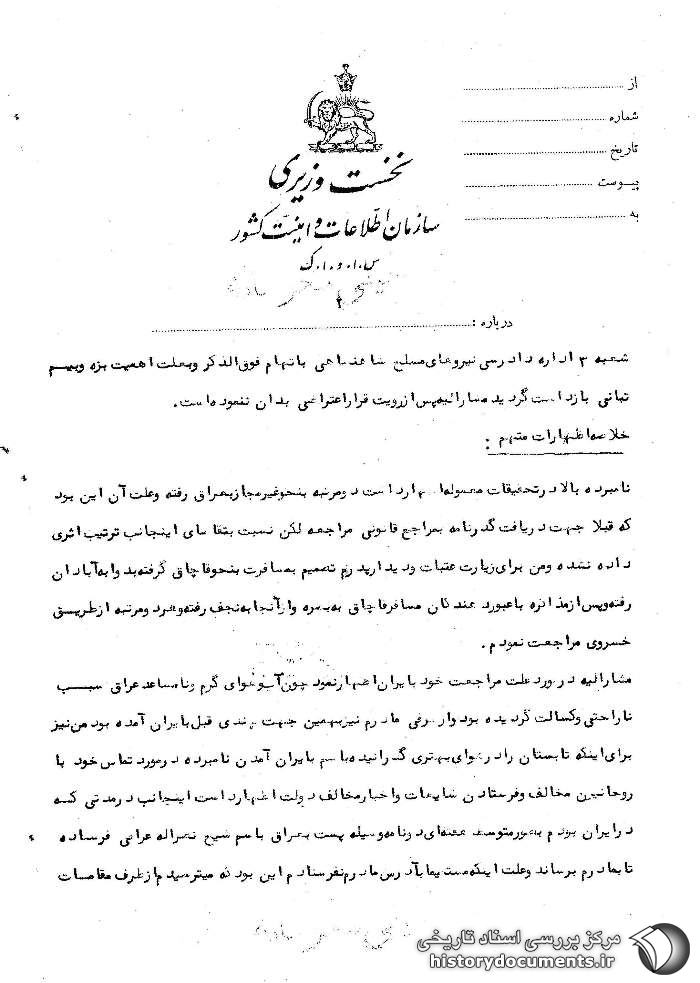 از
شماره
تاریخ
پیوست
به
نخست وزیری
سازمان اطلاعات و امنیت کشور
س.ا.و.ا.ک
درباره :
شعبه ۳ اداره دادرسی نیروهای مسلح شاهنشاهی باتهام فوق الذکر وبعلت اهمیت بزه وبیم
تبانی بازداشت گردید مشارالیه پس از رویت قرار اعتراضی بدان ننموده است.
خلاصه اظهارات متهم :
نامبرده بالا در تحقیقات معموله اظهار داشت دو مرتبه بنحو غیر مجاز بعراق رفته وعلت آن این بود
که قبلا جهت دریافت گذرنامه بمراجع قانونی مراجعه لکن نسبت بتقاضای اینجانب ترتیب اثری
داده نشده ومن برای زیارت عتبات ودیدار پدرم تصمیم به مسافرت بنحو قاچاق گرفته بدوا به آبادان
رفته وپس از مذاکره با عبود مسافر قاچاق به بصره واز آنجا به نجف رفته وهر دو مرتبه از طریق
خسروی مراجعت نمودم.
مشارالیه در مورد علت مراجعت خود بایران اظهار نمود چون آب وهوای گرم ونامساعد عراق سبب
ناراحتی وکسالت گردیده بود واز طرفی مادرم نیز بهمین جهت چندی قبل بایران آمده بود من نیز
برای اینکه تابستان را در هوای بهتری گذرانیده باشم بایران آمدم نامبرده در مورد تماس خود با
روحانیون مخالف وفرستادن شایعات واخبار مخالف دولت اظهار داشت اینجانب در مدتی که
در ایران بودم بطور متوسط هفته‌ای دو نامه وسیله پست بعراق باسم شیخ نصراله فرستاده
تا بمادرم برساند وعلت اینکه مستقیما بآدرس مادرم نفرستادم این بود که میترسیدم از طرف مقامات
مرکز بررسی اسناد تاریخی
historydocuments.ir